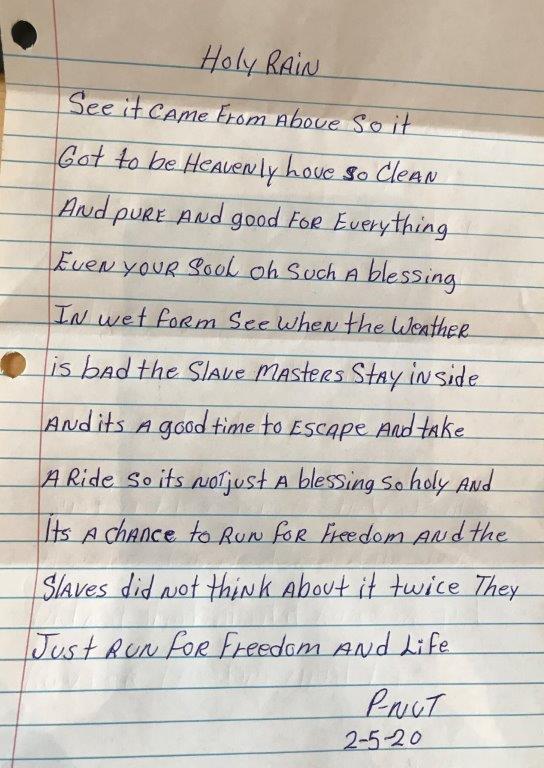 Holy RAIN
See it CAME From Above So it
Got to be HEAVENly hove so CleAN
And pURE AND good FOR Everything
EVEN YOUR Soul Oh Such A blessing
IN wet form See when the WeatheR
is bAd the SlAve MASteRs StAy iNside
ANd its A good time to EscApe And tAke
A Ride So its NOT just A blessing So holy AND
Its A chANce to RuN foR Freedom AND the
SlAves did Not thiNk About it twice They
Just RUN foR Freedom AND Life
P-NUT
2-5-20